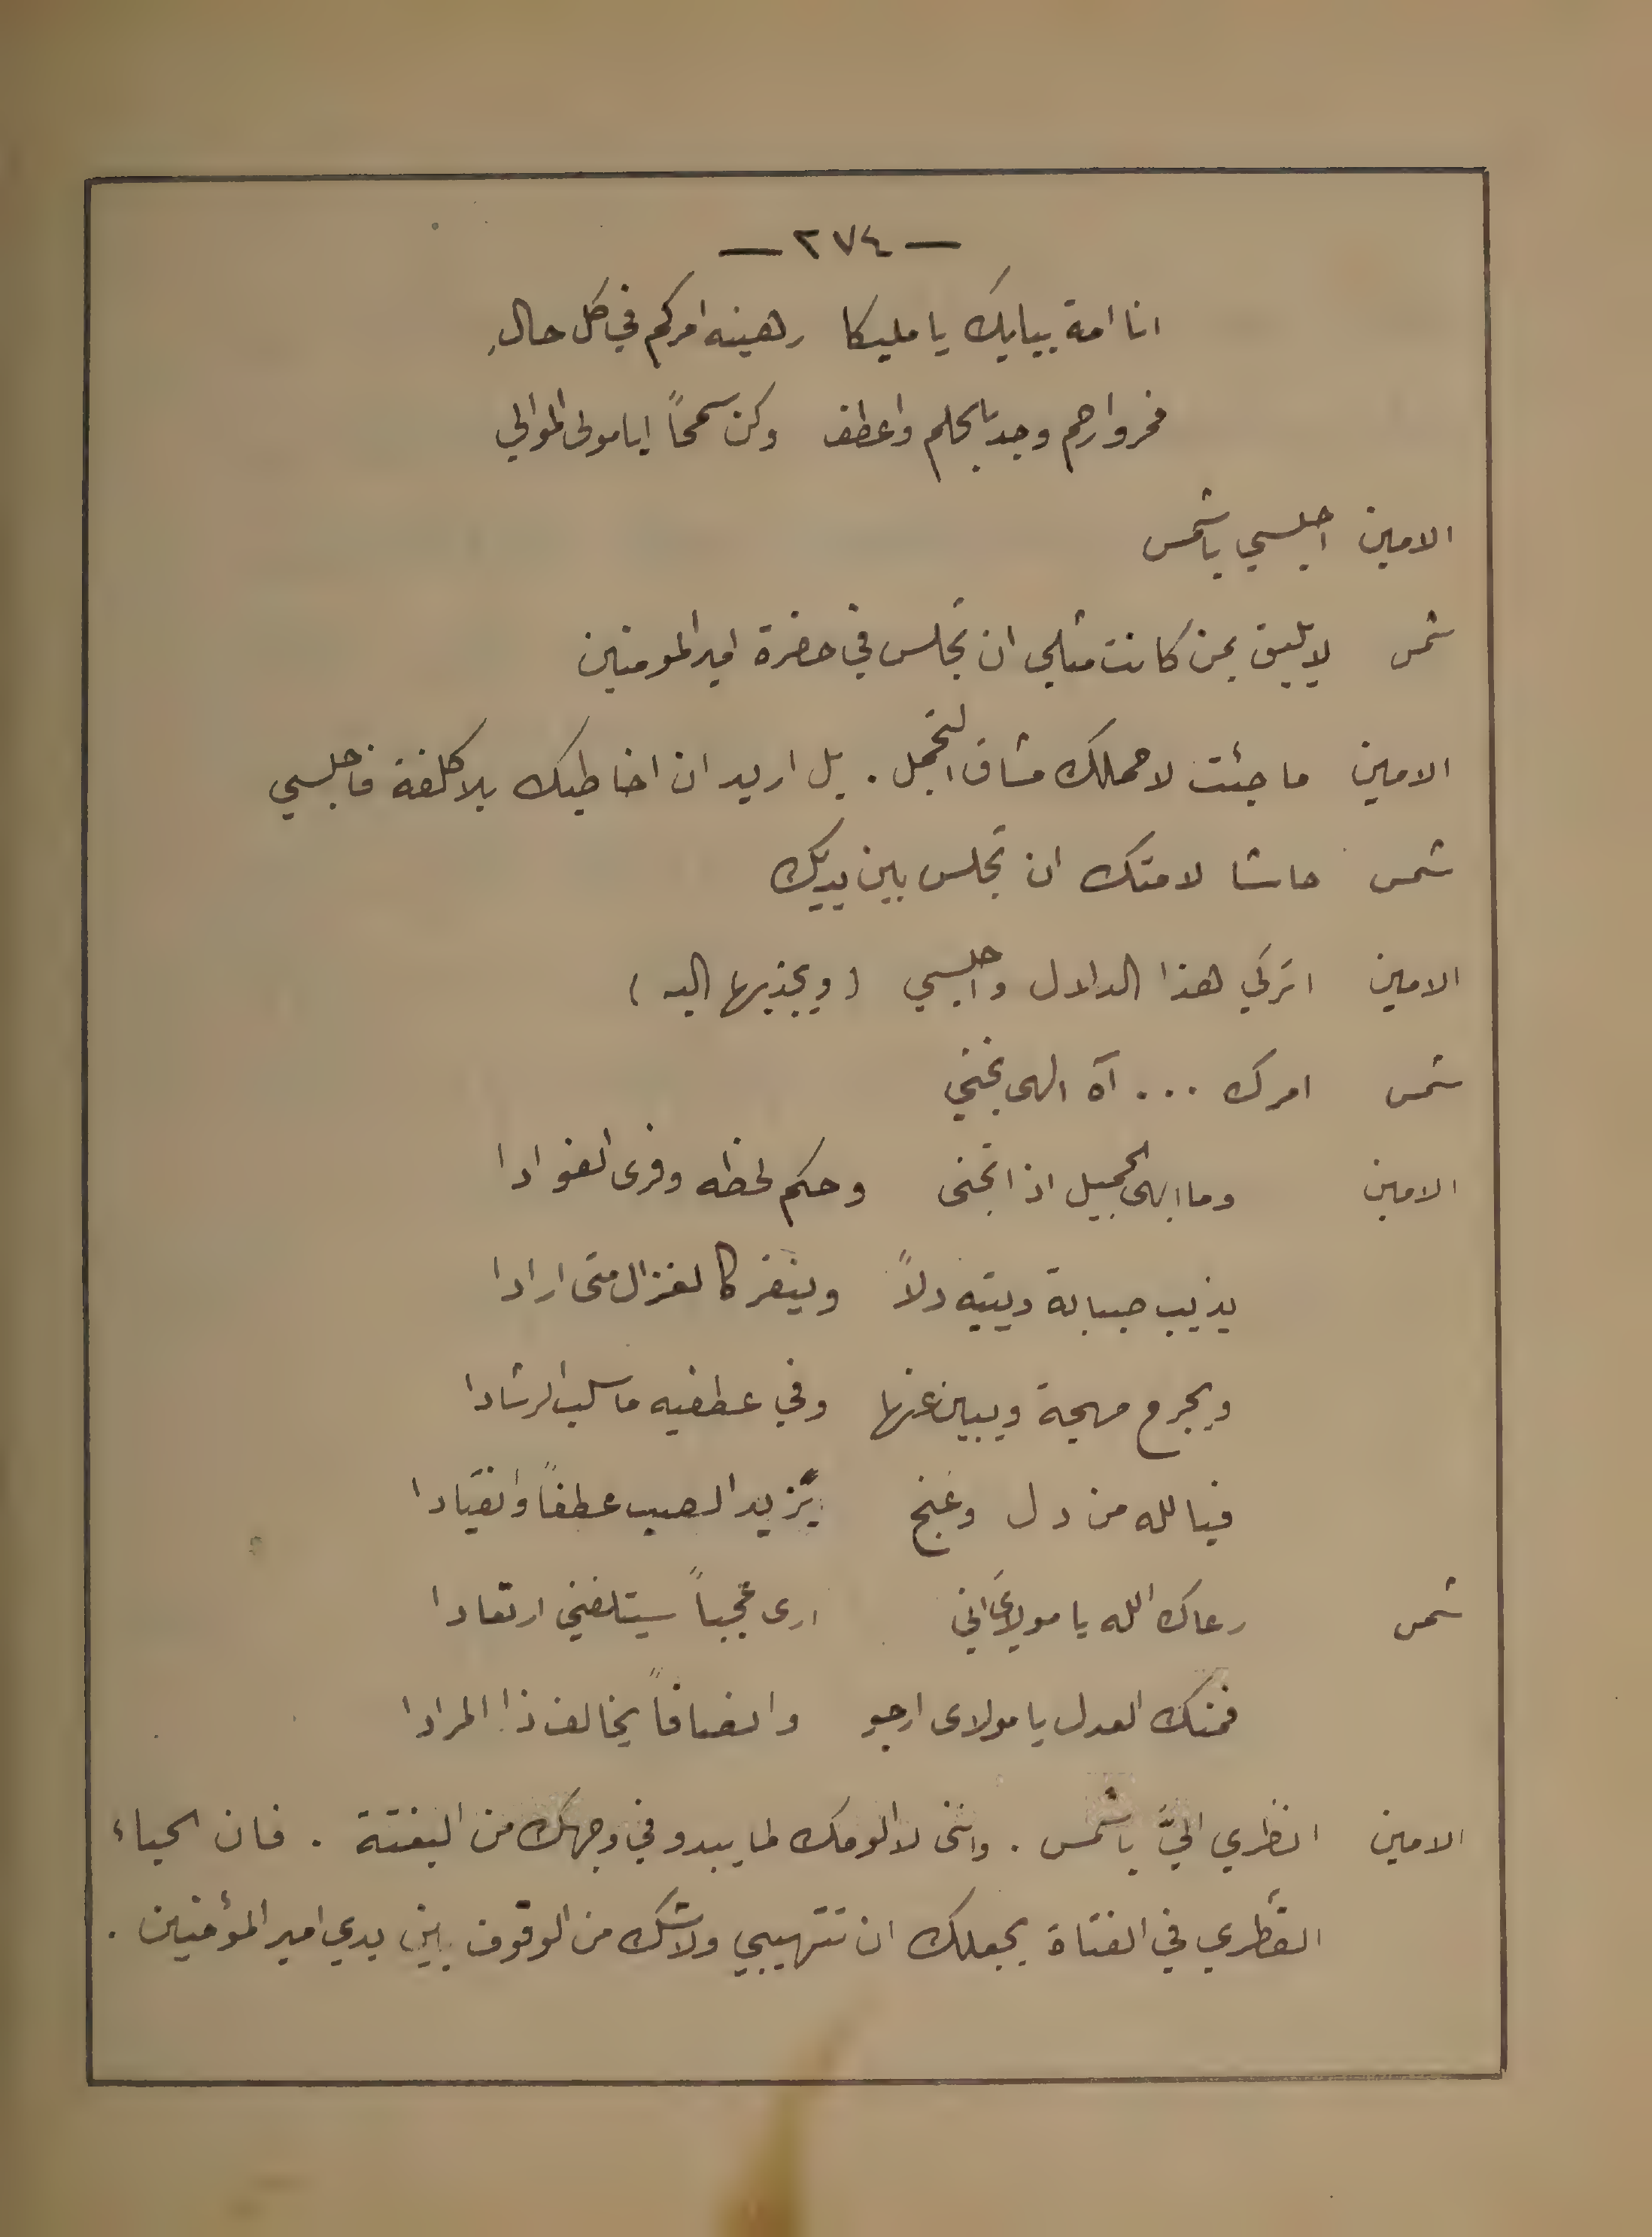 — ٢٧٤ —
انا امة ببابك يا مليكا رهينه امركم في كل حالِ
فمروارحم وجد بالحلم واعطف وكن سمحاً ايا مولى الموالي
الامين اجلسي ياشمس
شمس لا يليق بمن كانت مثلي ان تجلس في حضرة امير المومنين
الامين ما جئت لاحملك مشاق التجمل . بل اريد ان اخاطبك بلا كلفة فاجلسي
شمس حاشا لامتك ان تجلس بين يديك
الامين اتركي هذا الدلال واجلسي (ويجذبها اليه)
شمس امرك ... آه الهى نجني
الامين وما ابهى الجميل اذا تجنى وحكم لحظه وفرى الفوادا
يذيب صبابة ويتيه دلاً وينفر كالغزال متى ارادا
ويجرح مهجة ويبين عنها وفي عطفيه ما سلب الرشادا
فيالله من دل وغنج يزيد الصب عطفاً وانقيادا
شمس رعاك الله يا مولايَ اني ارى عجباً سيتلفني ارتعادا
فمنك العدل يا مولاى ارجو وانصافاً يخالف ذا المرادا
الامين انظري اليَّ ياشمس . وانني لا الومك لما يبدو في وجهك من البغتة . فان الحياء
الفطري في الفتاة يجعلك ان تتهيبي ولا شك من الوقوف بين يدي امير المؤمنين .